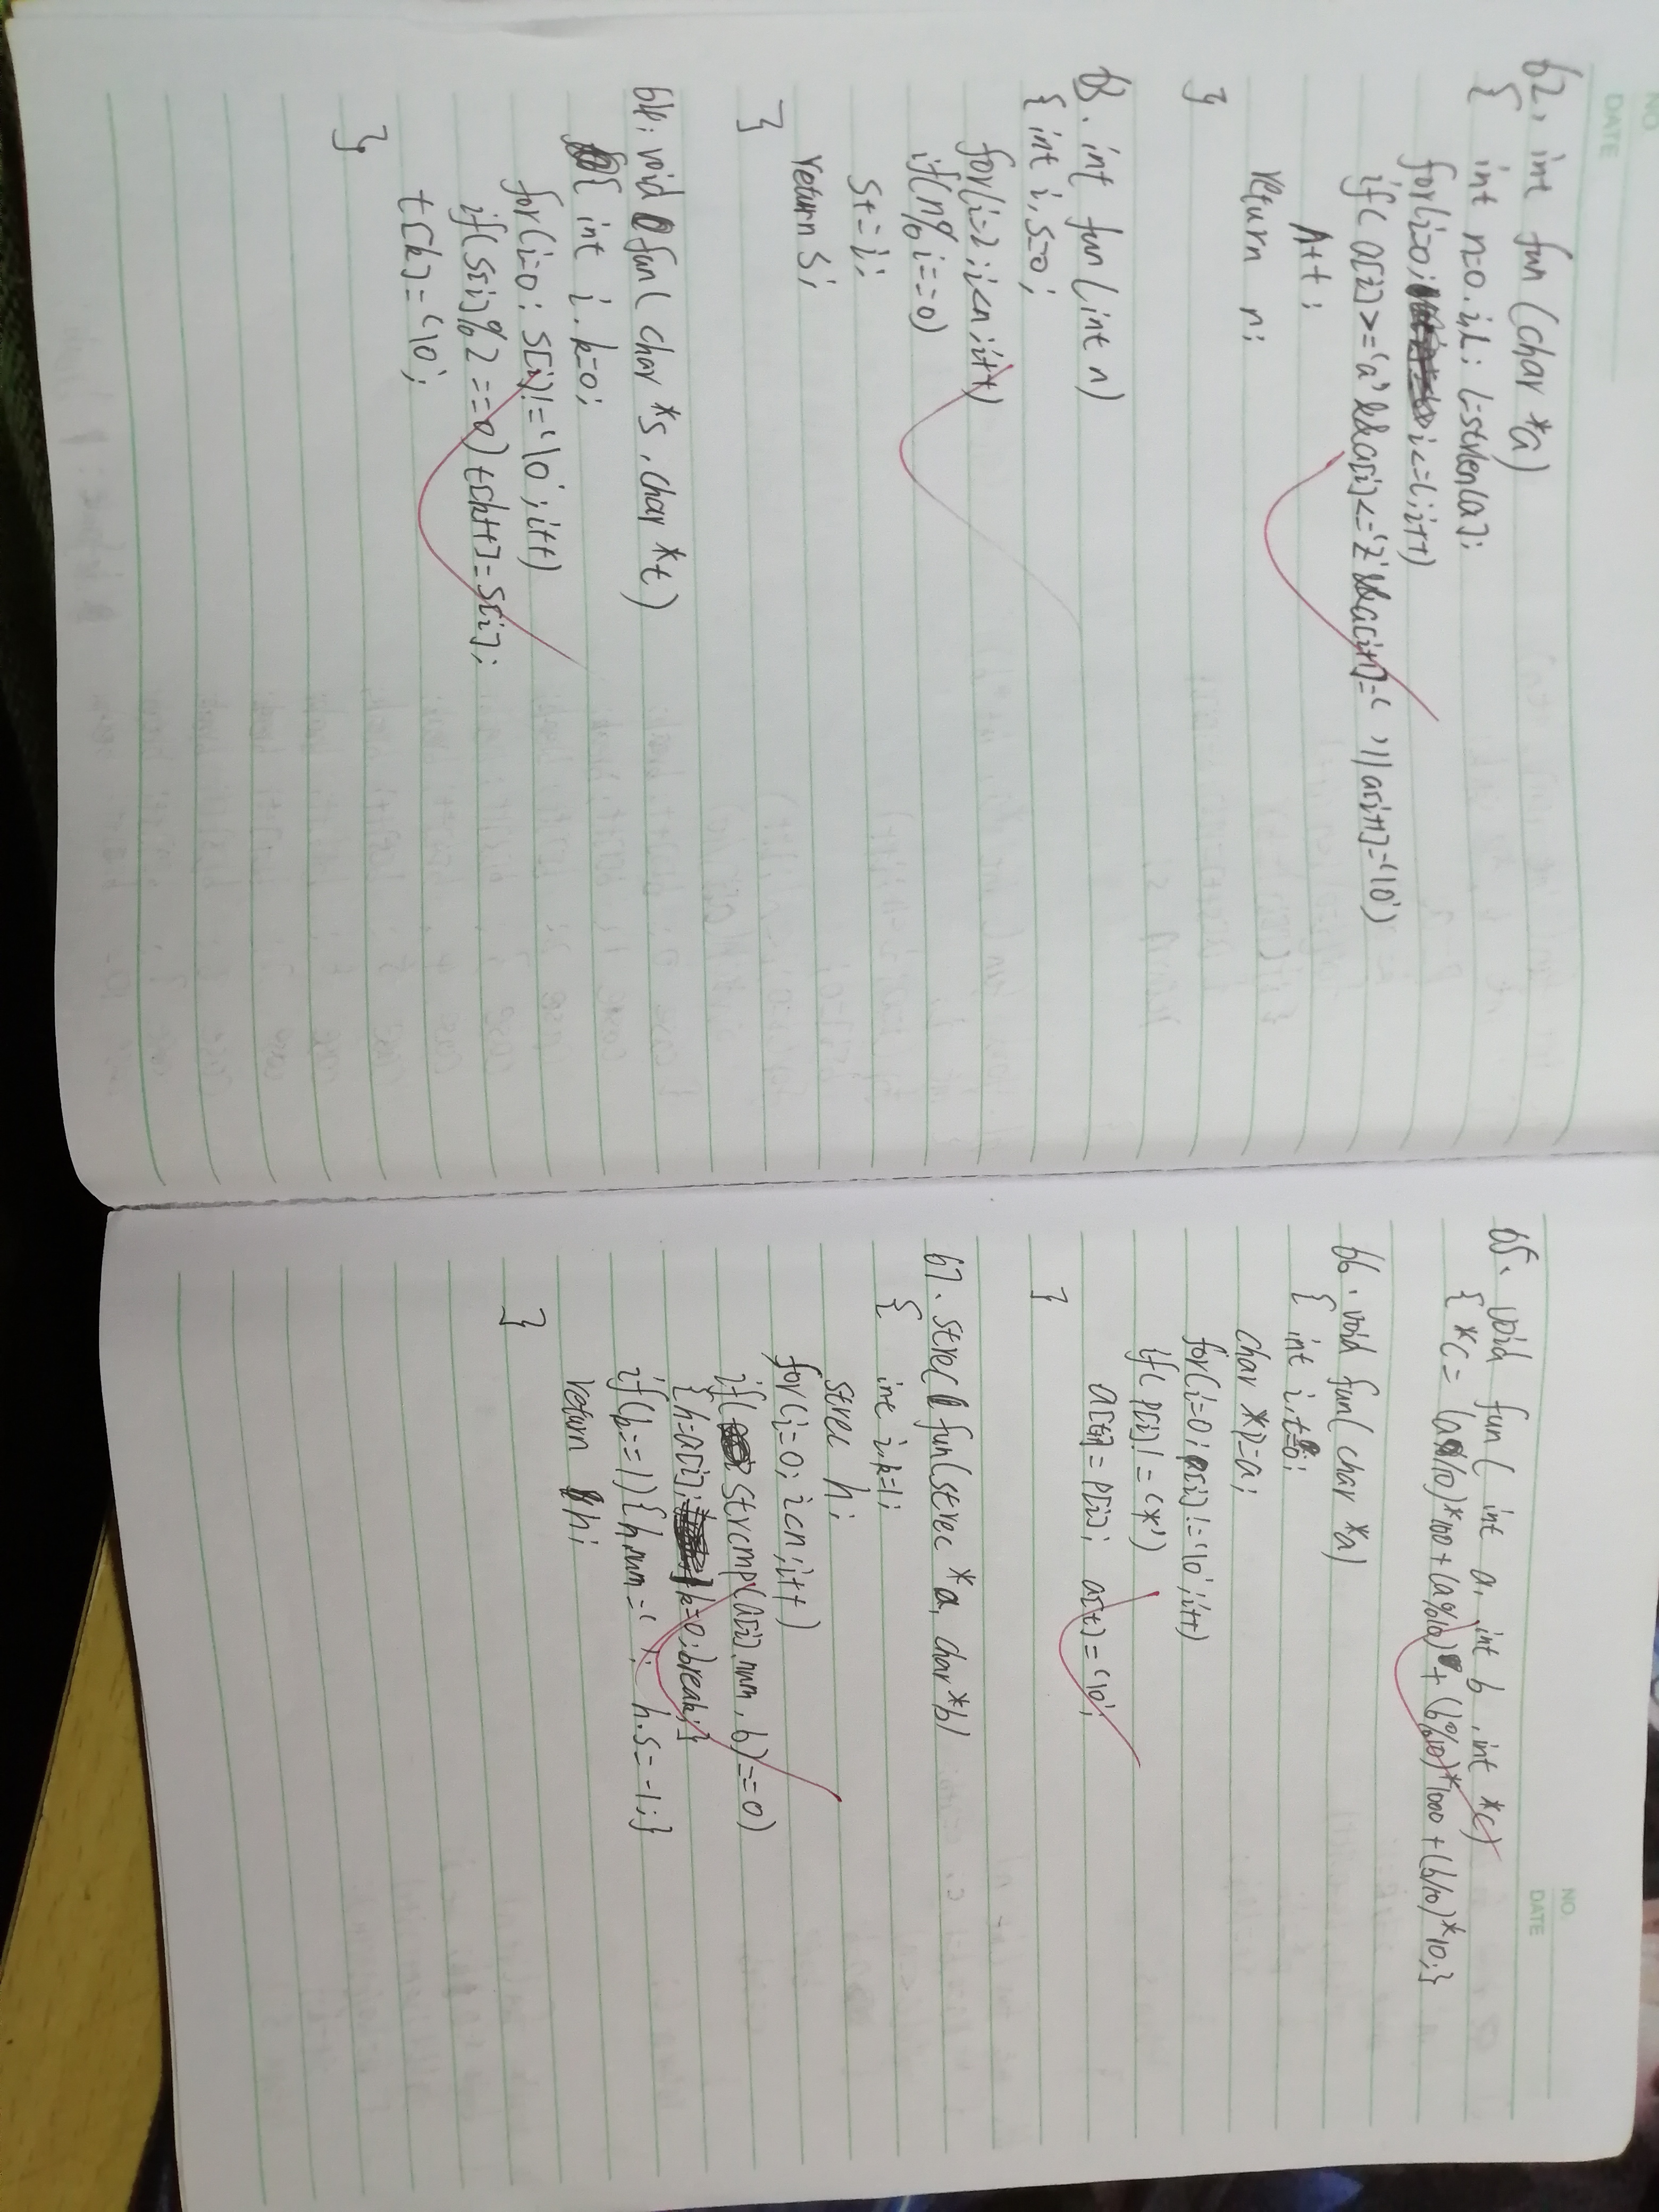 NO
DATE
62. int fun(char *a)
{ int n=0.i.l; l=strlen(a);
for(i=0; i<=l;i++)
if( a[i]>='a'&&a[i]<='z'&&a[i+1]=' '||a[i+1]='\0')
n++;
return n;
}
63. int fun(int n)
{ int i,s=0;
for(i=2;i<n;i++)
if(n%i==0)
s+=i;
return s;
}
64. void fun( char *s, char *t)
{ int i.k=0;
for(i=0; s[i]!='\0';i++)
if(s[i]%2==0) t[k++]=s[i];
t[k]='\0';
}
NO.
DATE
65. void fun( int a, int b, int *c)
{ *c= (a/10)*100+(a%10)+(b%10)*1000+(b/10)*10;}
66. void fun( char *a)
{ int i,t=0;
char *p=a;
for(i=0; p[i]!='\0';i++)
if( p[i]!='*')
a[t++]=p[i]; a[t]='\0';
}
67. strec fun(strec *a, char *b)
{ int i.k=1;
strec h;
for(i=0; i<n;i++)
if( strcmp(a[i].num, b)==0)
{h=a[i]; k=0;break;}
if(k==1){h.num=' '; h.s=-1;}
return h;
}